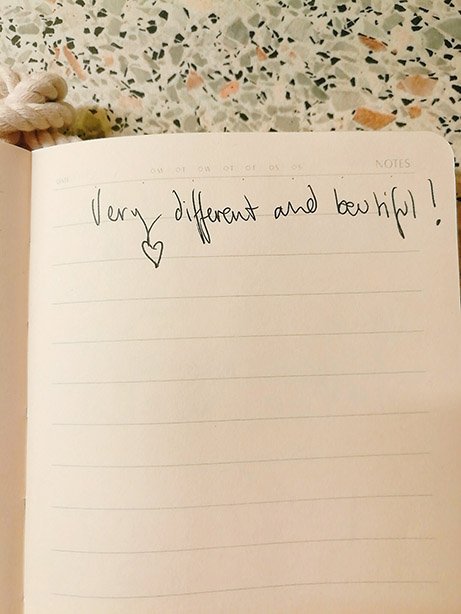 NOTES
Very different and beutiful!